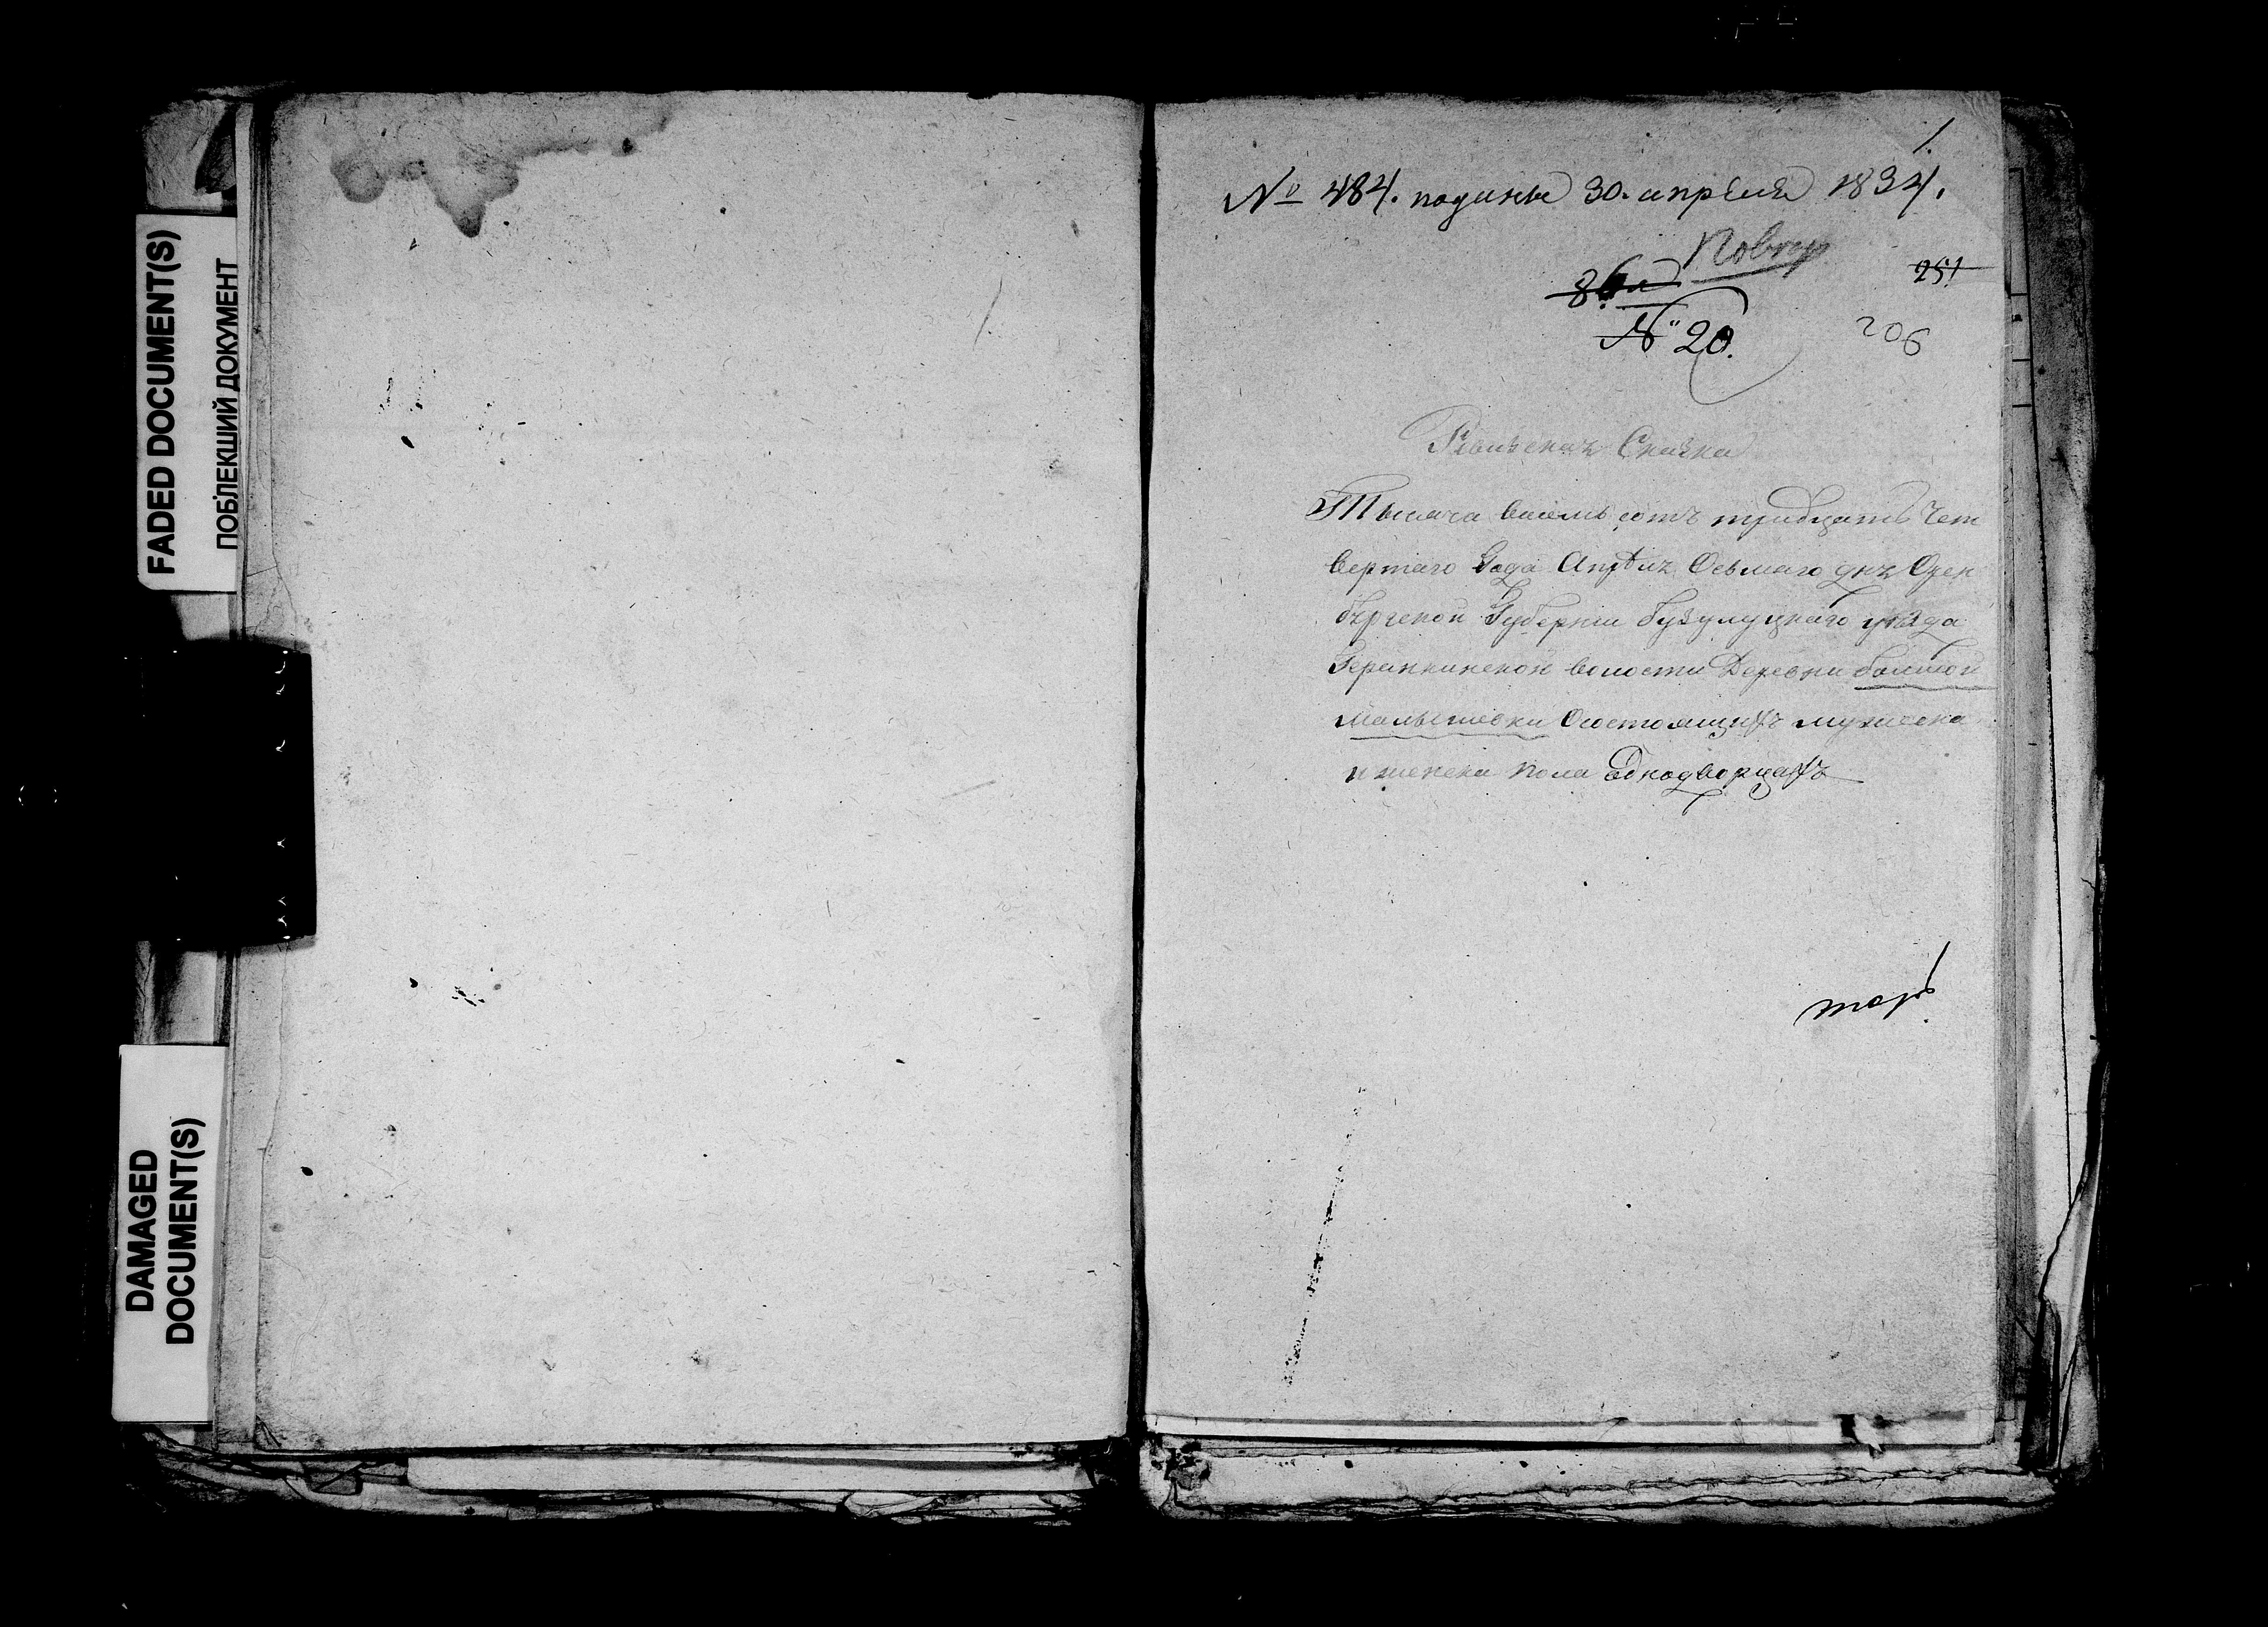 FADED DOCUMENT(S)
ПОБЛЕКШИЙ ДОКУМЕНТ
DAMAGED
DOCUMENT(S)
1.
№ 484. поданы 30. апреля 1834.
251
№ 20.
206
Ревизская Сказка
Тысяча восемь сотъ тридцать Чет
вертаго Года Апреля Осьмаго дня Орен
бургской Губернии бузулуцкаго уезда
волости Деревни большой
малышевки О состоящихъ мужеска
и женска пола Однодворцахъ